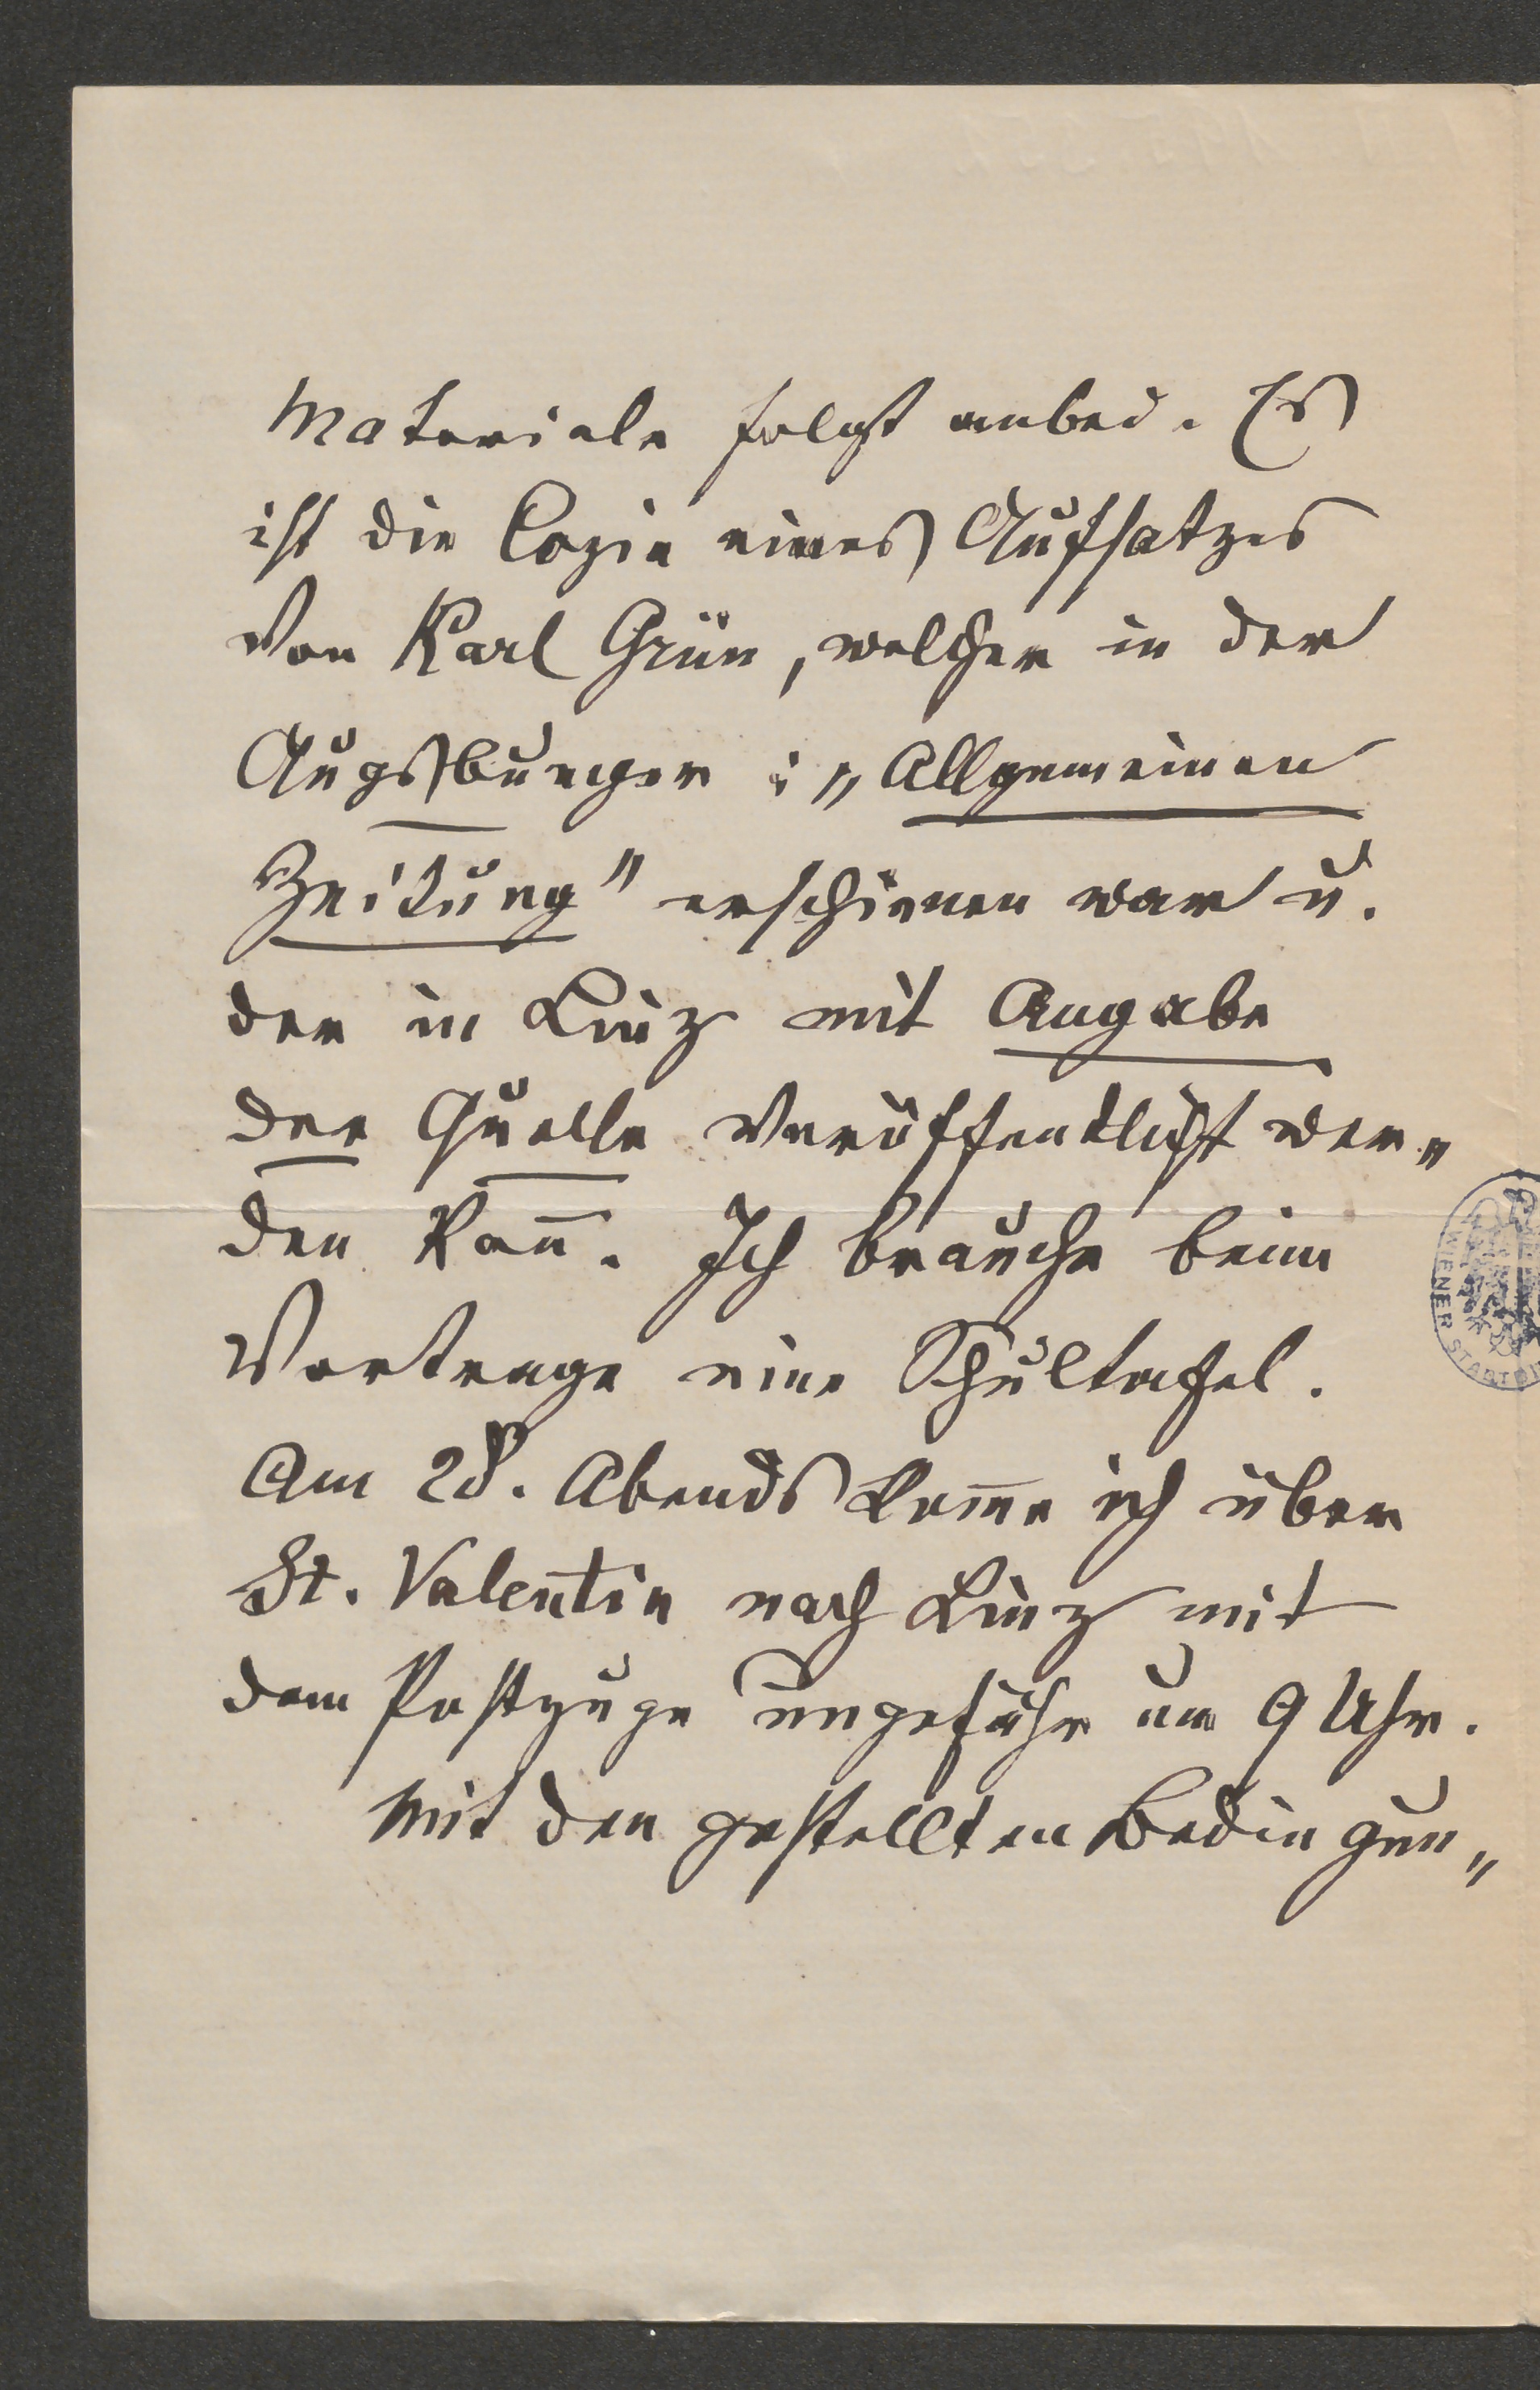 Materiale folgt anbei. Es
ist die Copie eines Aufsatzes
von Karl Grün, welcher in der
Augsburger „Allgemeinen
Zeitung" erschienen war u.
der in Linz mit Angabe
der Quelle veröffentlicht wer„
den kan̄. Ich brauche beim
Vortrage eine Schultafel.
Am 28. Abends kom̄e ich über
St. Valentin nach Linz mit
dem Postzuge ungefähr um 9 Uhr.
Mit den gestellten Bedingun„
WIENER STADT